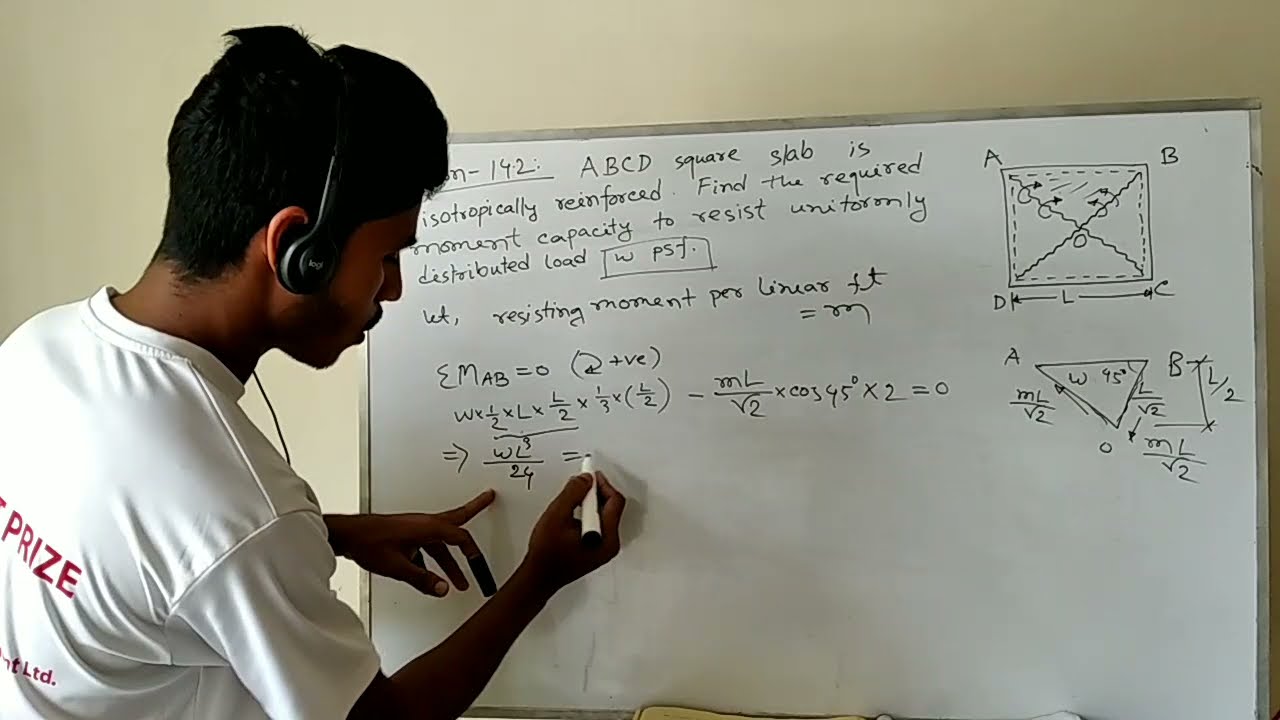 14.2: ABCD square slab is
isotropically reinforced. Find the required
moment capacity to resist uniformly
distributed load w psf.
let, resisting moment per linear ft
= m
ΣM_AB = 0 (↻ +ve)
w × 1/2 × L × L/2 × 1/3 × (L/2) − mL/√2 × cos 45° × 2 = 0
⇒ wL³/24 =
A B
D L C
A B
w 45°
mL/√2 L/√2 L/2
O mL/√2
PRIZE
Ltd.
logi